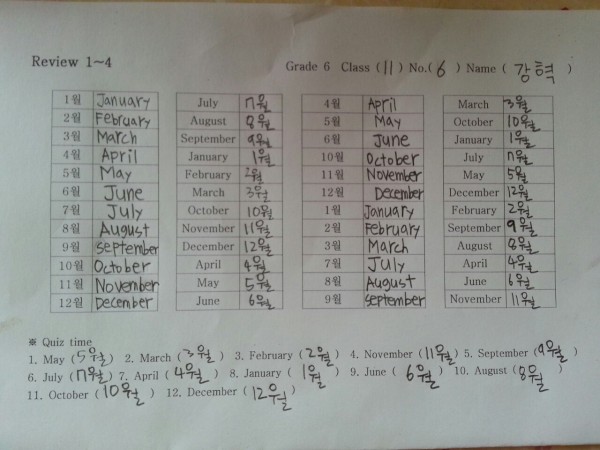 Review 1~4 Grade 6 Class (11) No.(6) Name (강혁)
1월 January July 7월 4월 April March 3월
2월 February August 8월 5월 May October 10월
3월 March September 9월 6월 June January 1월
4월 April January 1월 10월 October July 7월
5월 May February 2월 11월 November May 5월
6월 June March 3월 12월 December December 12월
7월 July October 10월 1월 January February 2월
8월 August November 11월 2월 February September 9월
9월 September December 12월 3월 March August 8월
10월 October April 4월 7월 July April 4월
11월 November May 5월 8월 August June 6월
12월 December June 6월 9월 September November 11월
※ Quiz time
1. May (5월) 2. March (3월) 3. February (2월) 4. November (11월) 5. September (9월)
6. July (7월) 7. April (4월) 8. January (1월) 9. June (6월) 10. August (8월)
11. October (10월) 12. December (12월)